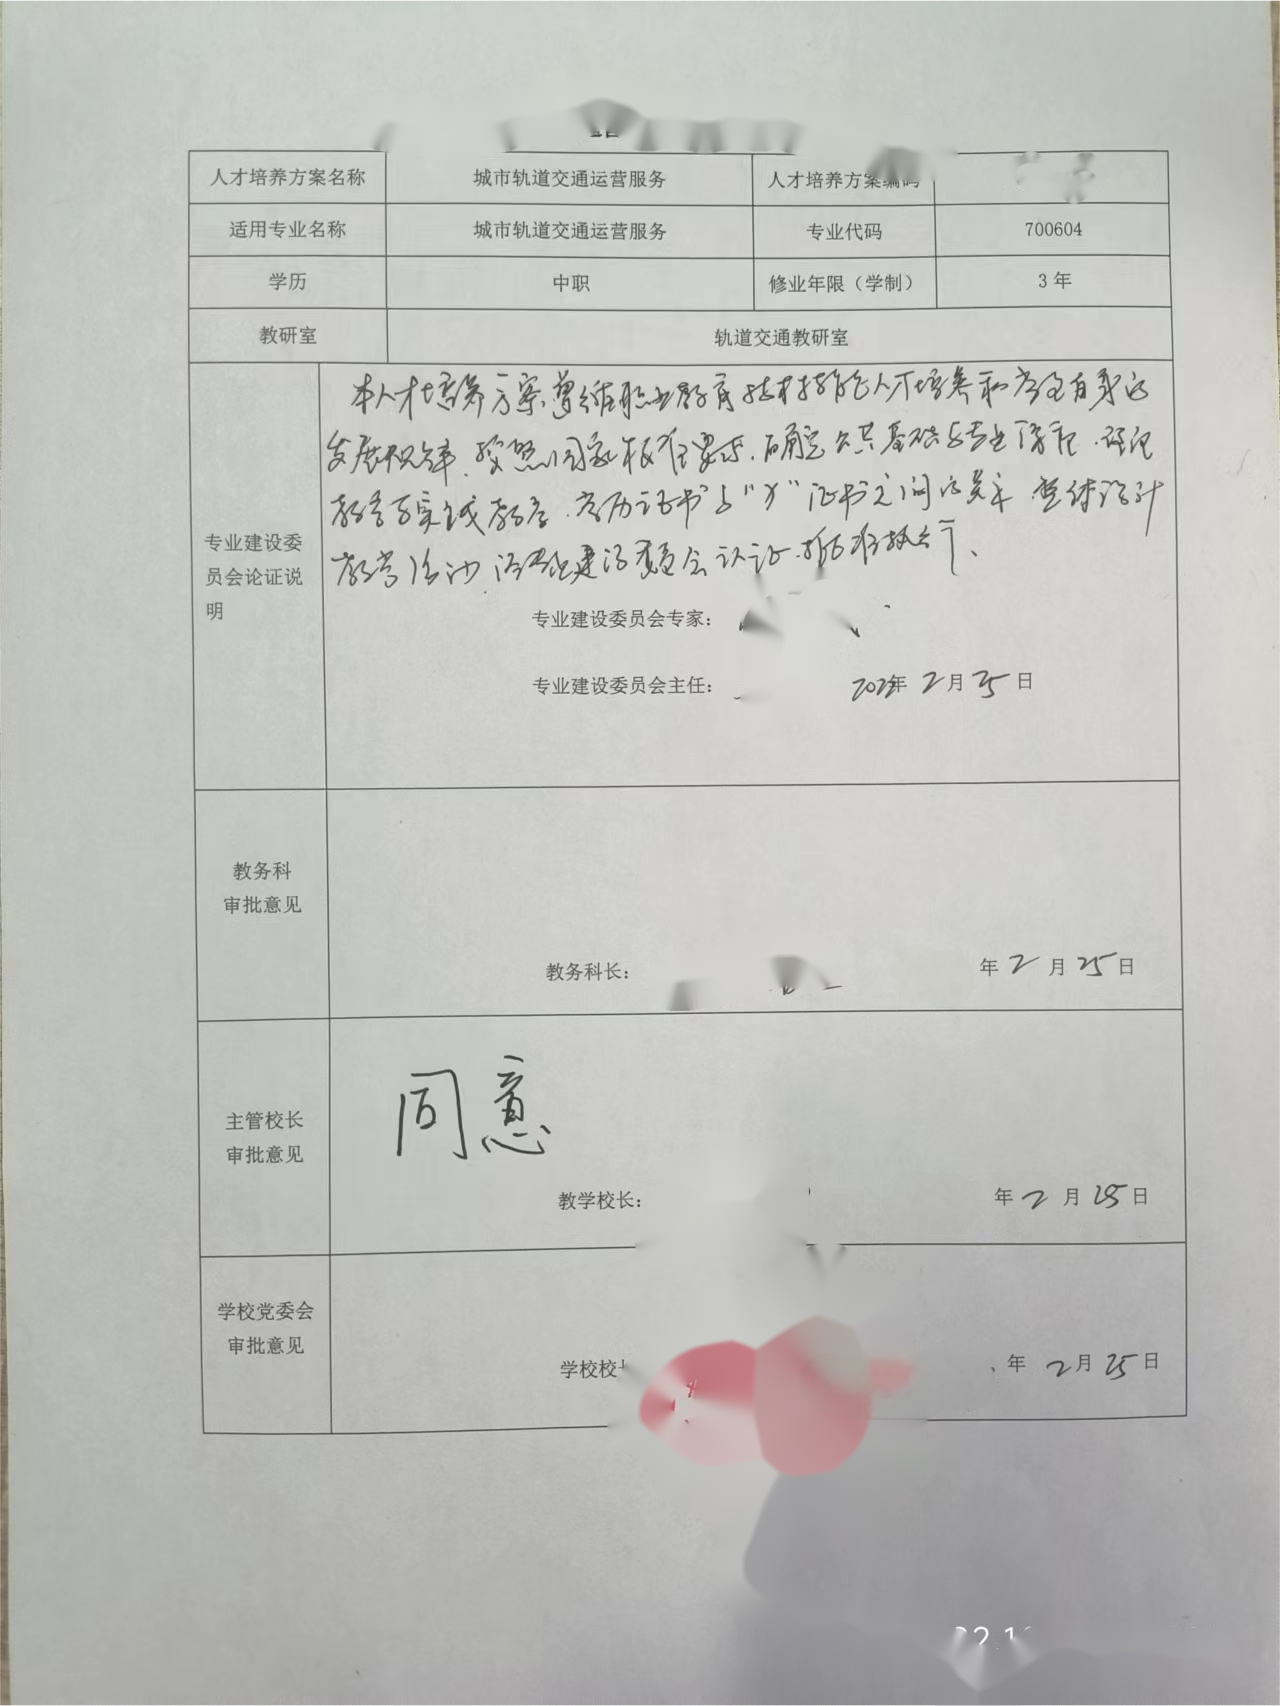 人才培养方案名称 城市轨道交通运营服务 人才培养方案编码
适用专业名称 城市轨道交通运营服务 专业代码 700604
学历 中职 修业年限（学制） 3 年
教研室 轨道交通教研室
专业建设委员会论证说明
本人才培养方案遵循职业教育技术技能人才培养和学生自身的
发展规律，按照国家标准要求，确定公共基础与专业、理论
教学与实践教学、学历证书与"X"证书之间的关系，整体设计
教学活动，经专业建设委员会认证，批准执行。
专业建设委员会专家：
专业建设委员会主任： 年 2 月 25 日
教务科
审批意见
教务科长： 年 2 月 25 日
主管校长
审批意见
同意
教学校长： 年 2 月 25 日
学校党委会
审批意见
学校校 年 2 月 25 日